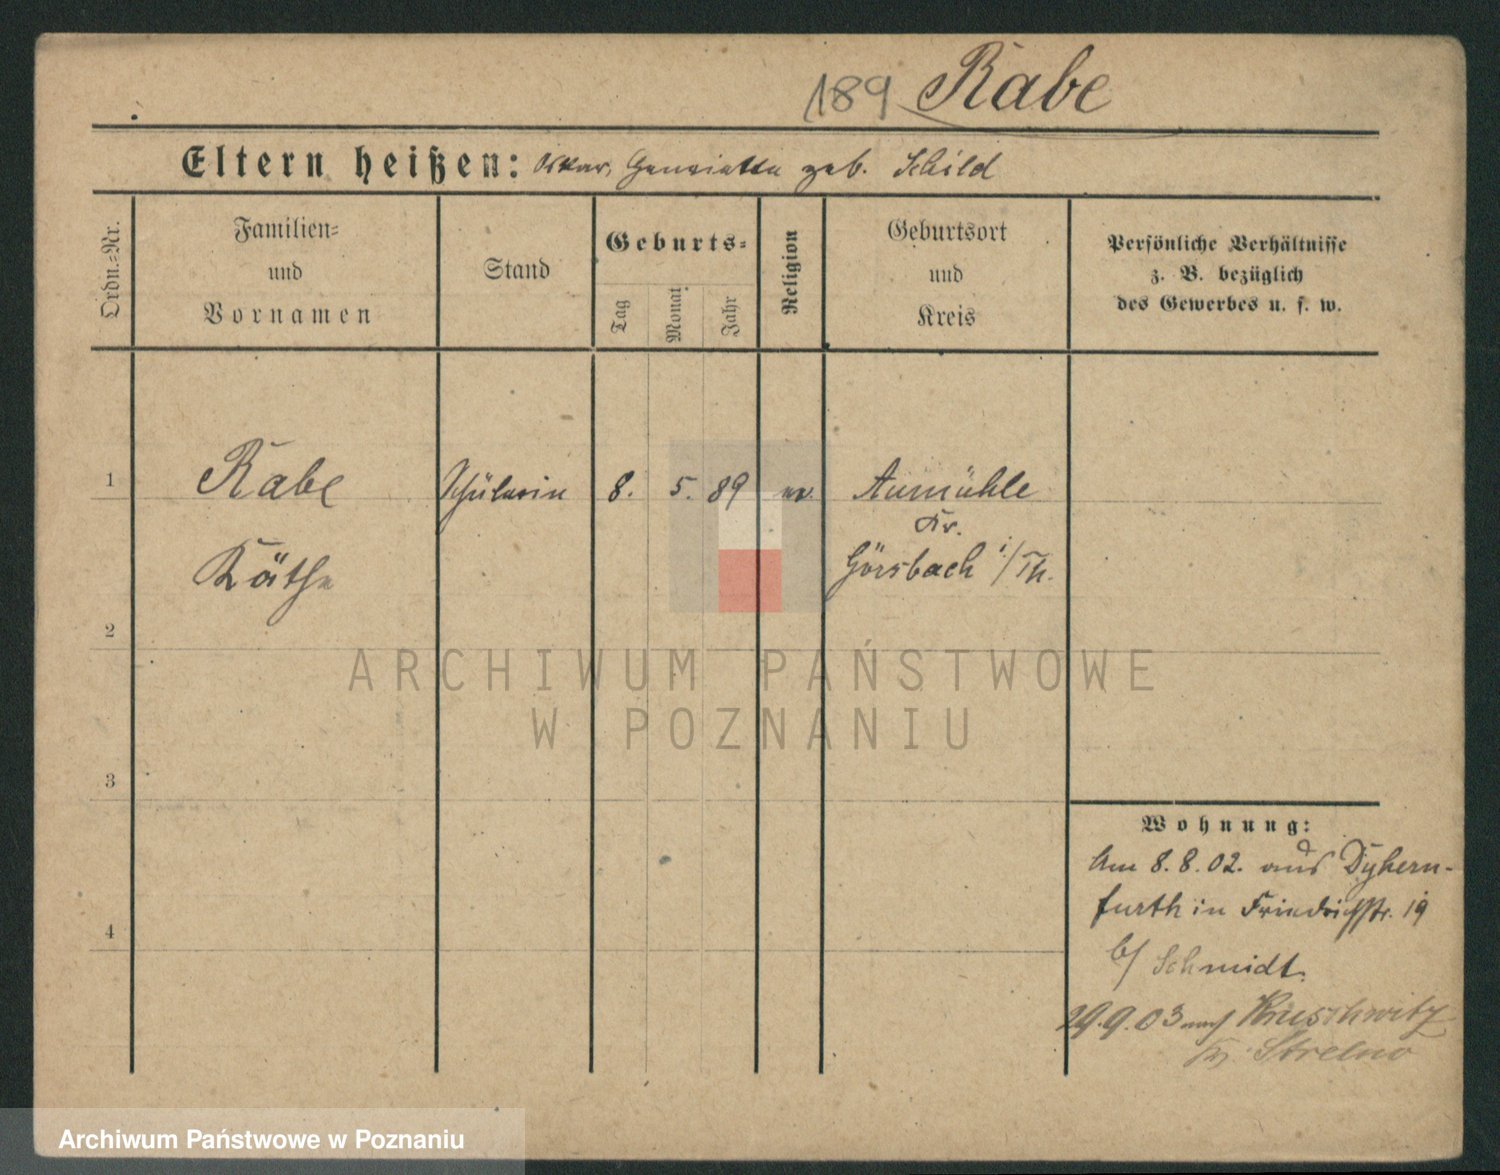 189 Rabe
Eltern heißen: Oskar, Henriette geb. Schild
Ordn.=Nr.
Familien=
und
Vornamen
Stand
Geburts=
Tag
Monat
Jahr
Religion
Geburtsort
und
Kreis
Persönliche Verhältnisse
z. B. bezüglich
des Gewerbes u. s. w.
1
Rabe
Schülerin
8.
5.
89
ev.
Aumühle
Kr.
Görsbach i/Th.
Käthe
2
ARCHIWUM PAŃSTWOWE
W POZNANIU
3
4
Wohnung:
Am 8.8.02. aus Dyhern-
furth in Friedrichstr. 19
b/ Schmidt.
29.9.03 nach Kruschwitz
Kr. Strelno
Archiwum Państwowe w Poznaniu